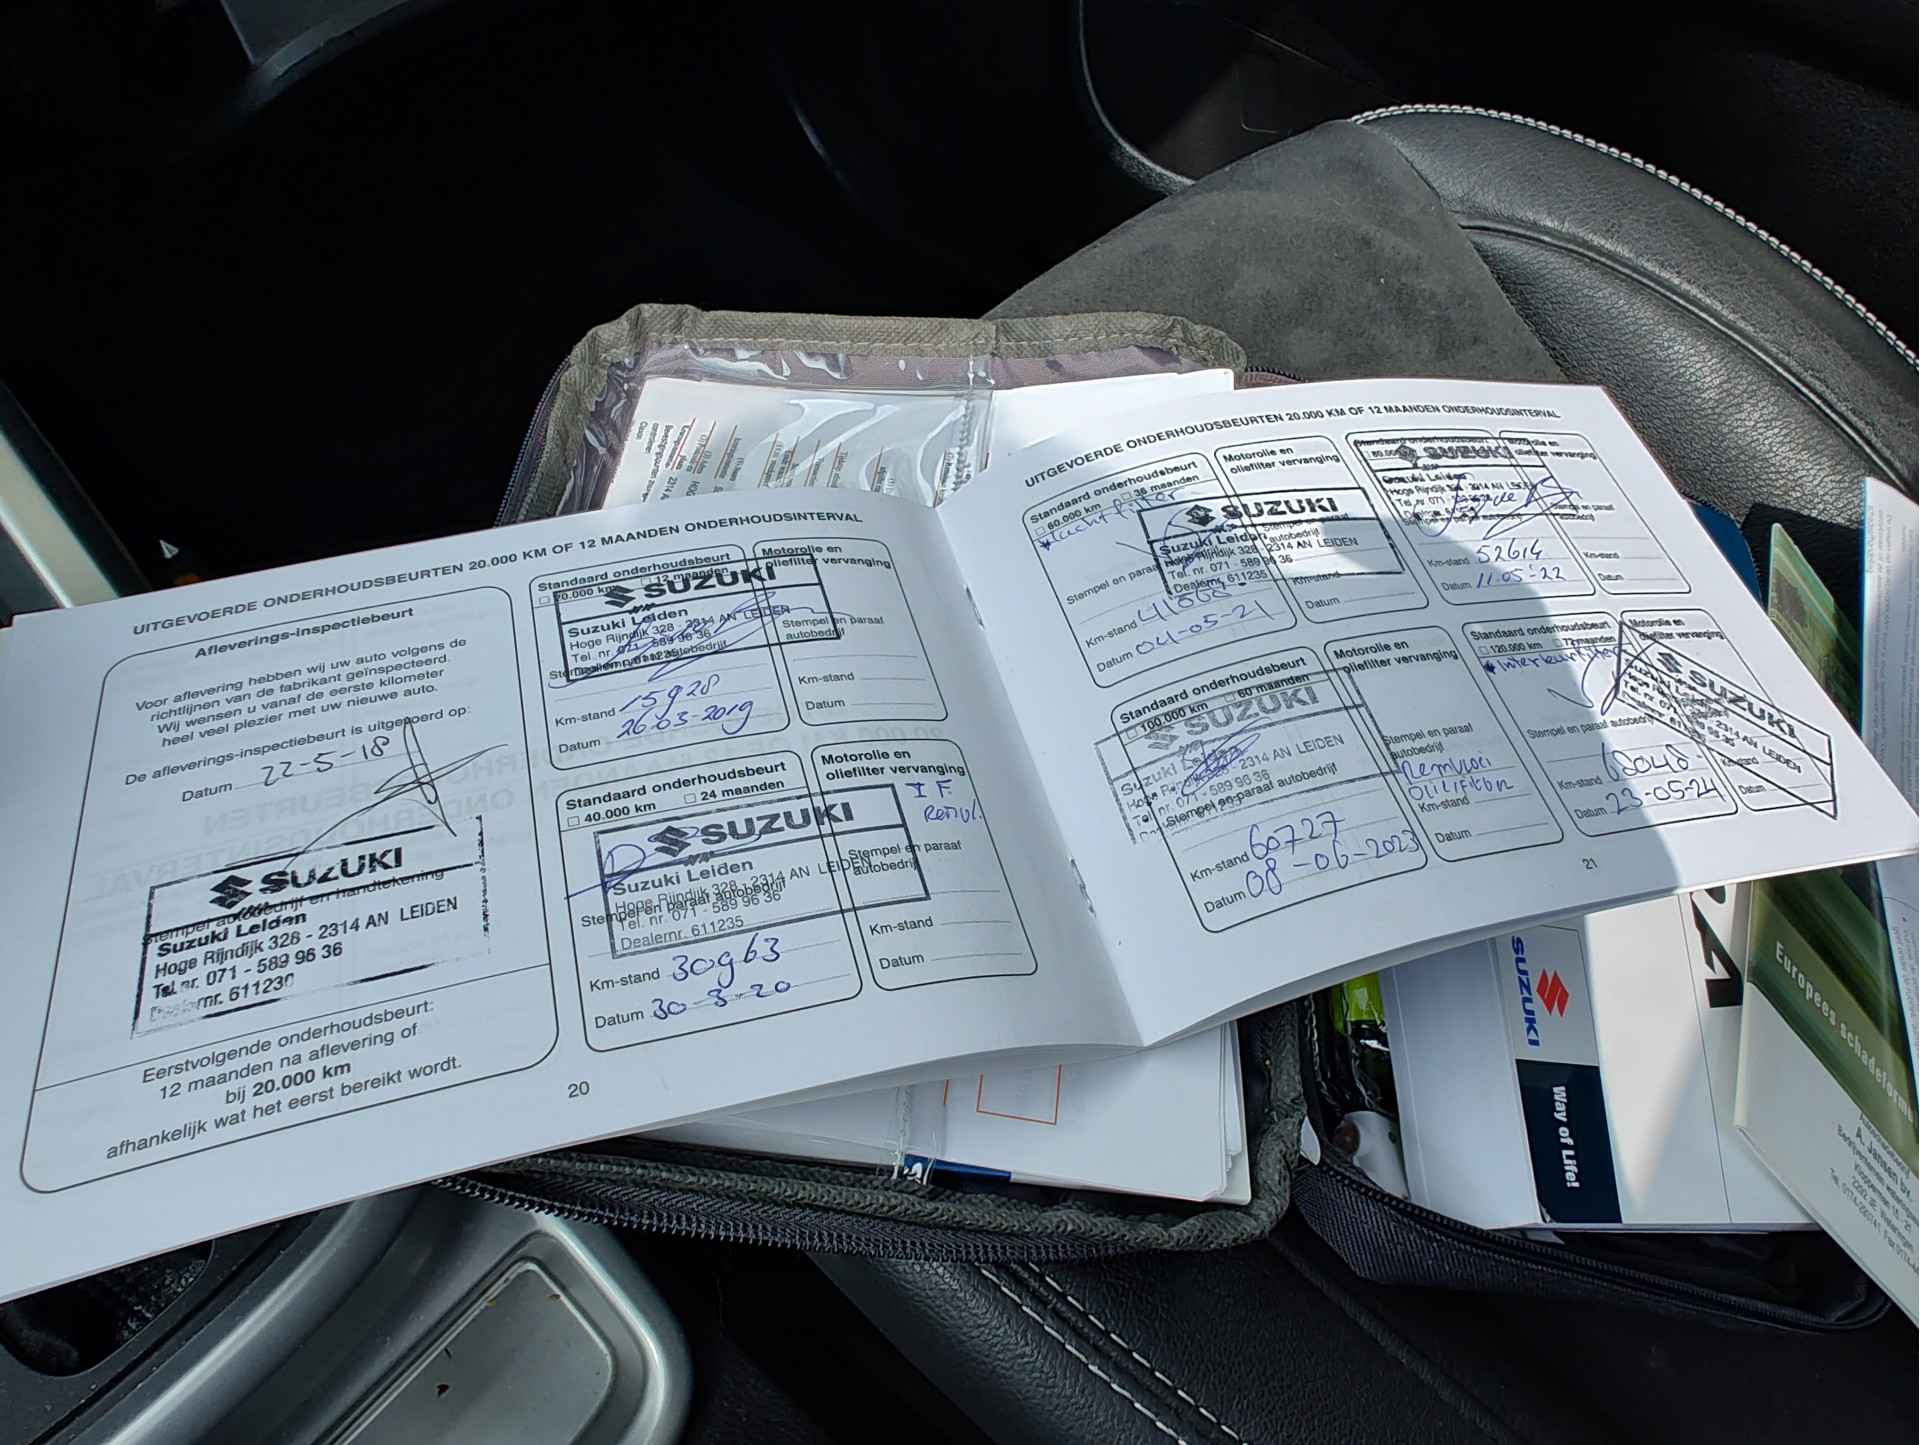 UITGEVOERDE ONDERHOUDSBEURTEN 20.000 KM OF 12 MAANDEN ONDERHOUDSINTERVAL
Afleverings-inspectiebeurt
Voor aflevering hebben wij uw auto volgens de
richtlijnen van de fabrikant geïnspecteerd.
Wij wensen u vanaf de eerste kilometer
heel veel plezier met uw nieuwe auto.
De afleverings-inspectiebeurt is uitgevoerd op:
Datum 22-5-18
SUZUKI
Stempel autobedrijf en handtekening
Suzuki Leiden
Hoge Rijndijk 328 - 2314 AN LEIDEN
Tel. nr. 071 - 589 96 36
Dealernr. 611235
Eerstvolgende onderhoudsbeurt:
12 maanden na aflevering of
bij 20.000 km
afhankelijk wat het eerst bereikt wordt.
Standaard onderhoudsbeurt
20.000 km 12 maanden
SUZUKI
Suzuki Leiden
Hoge Rijndijk 328 - 2314 AN LEIDEN
Tel. nr. 071 - 589 96 36
Dealernr. 611235
Stempel en paraaf autobedrijf
Km-stand 15928
Datum 26-03-2019
Motorolie en
oliefilter vervanging
Stempel en paraaf
autobedrijf
Km-stand
Datum
Standaard onderhoudsbeurt
40.000 km 24 maanden
SUZUKI
Suzuki Leiden
Hoge Rijndijk 328 - 2314 AN LEIDEN
Stempel en paraaf autobedrijf
Tel. nr. 071 - 589 96 36
Dealernr. 611235
Km-stand 30963
Datum 30-3-20
Motorolie en
oliefilter vervanging
I F
Remvl.
Stempel en paraaf
autobedrijf
Km-stand
Datum
20
UITGEVOERDE ONDERHOUDSBEURTEN 20.000 KM OF 12 MAANDEN ONDERHOUDSINTERVAL
Standaard onderhoudsbeurt
60.000 km 36 maanden
*Luchtfilter
SUZUKI
Suzuki Leiden
Hoge Rijndijk 328 - 2314 AN LEIDEN
Tel. nr. 071 - 589 96 36
Dealernr. 611235
Stempel en paraaf
Km-stand
Datum 04-05-21
Motorolie en
oliefilter vervanging
Stempel en paraaf
Km-stand
Datum
Standaard onderhoudsbeurt
80.000
SUZUKI
Suzuki Leiden
Hoge Rijndijk 328 - 2314 AN LEIDEN
Tel. nr. 071 - 589 96 36
Stempel en paraaf autobedrijf
Km-stand 52614
Datum 11-05-22
Motorolie en
oliefilter vervanging
Stempel en paraaf
autobedrijf
Km-stand
Datum
Standaard onderhoudsbeurt
100.000 km 60 maanden
SUZUKI
Suzuki Leiden
328 - 2314 AN LEIDEN
Tel. nr. 071 - 589 96 36
Stempel en paraaf autobedrijf
Km-stand 60727
Datum 08-06-2023
Motorolie en
oliefilter vervanging
Stempel en paraaf
autobedrijf
Km-stand
Datum
Standaard onderhoudsbeurt
120.000 km 72 maanden
*Interieurfilter
Stempel en paraaf autobedrijf
Km-stand 68048
Datum 23-05-24
Motorolie en
oliefilter vervanging
SUZUKI
Km-stand
Datum
21
SUZUKI
Way of Life!
Europees schadeformu
A. Jansen bv